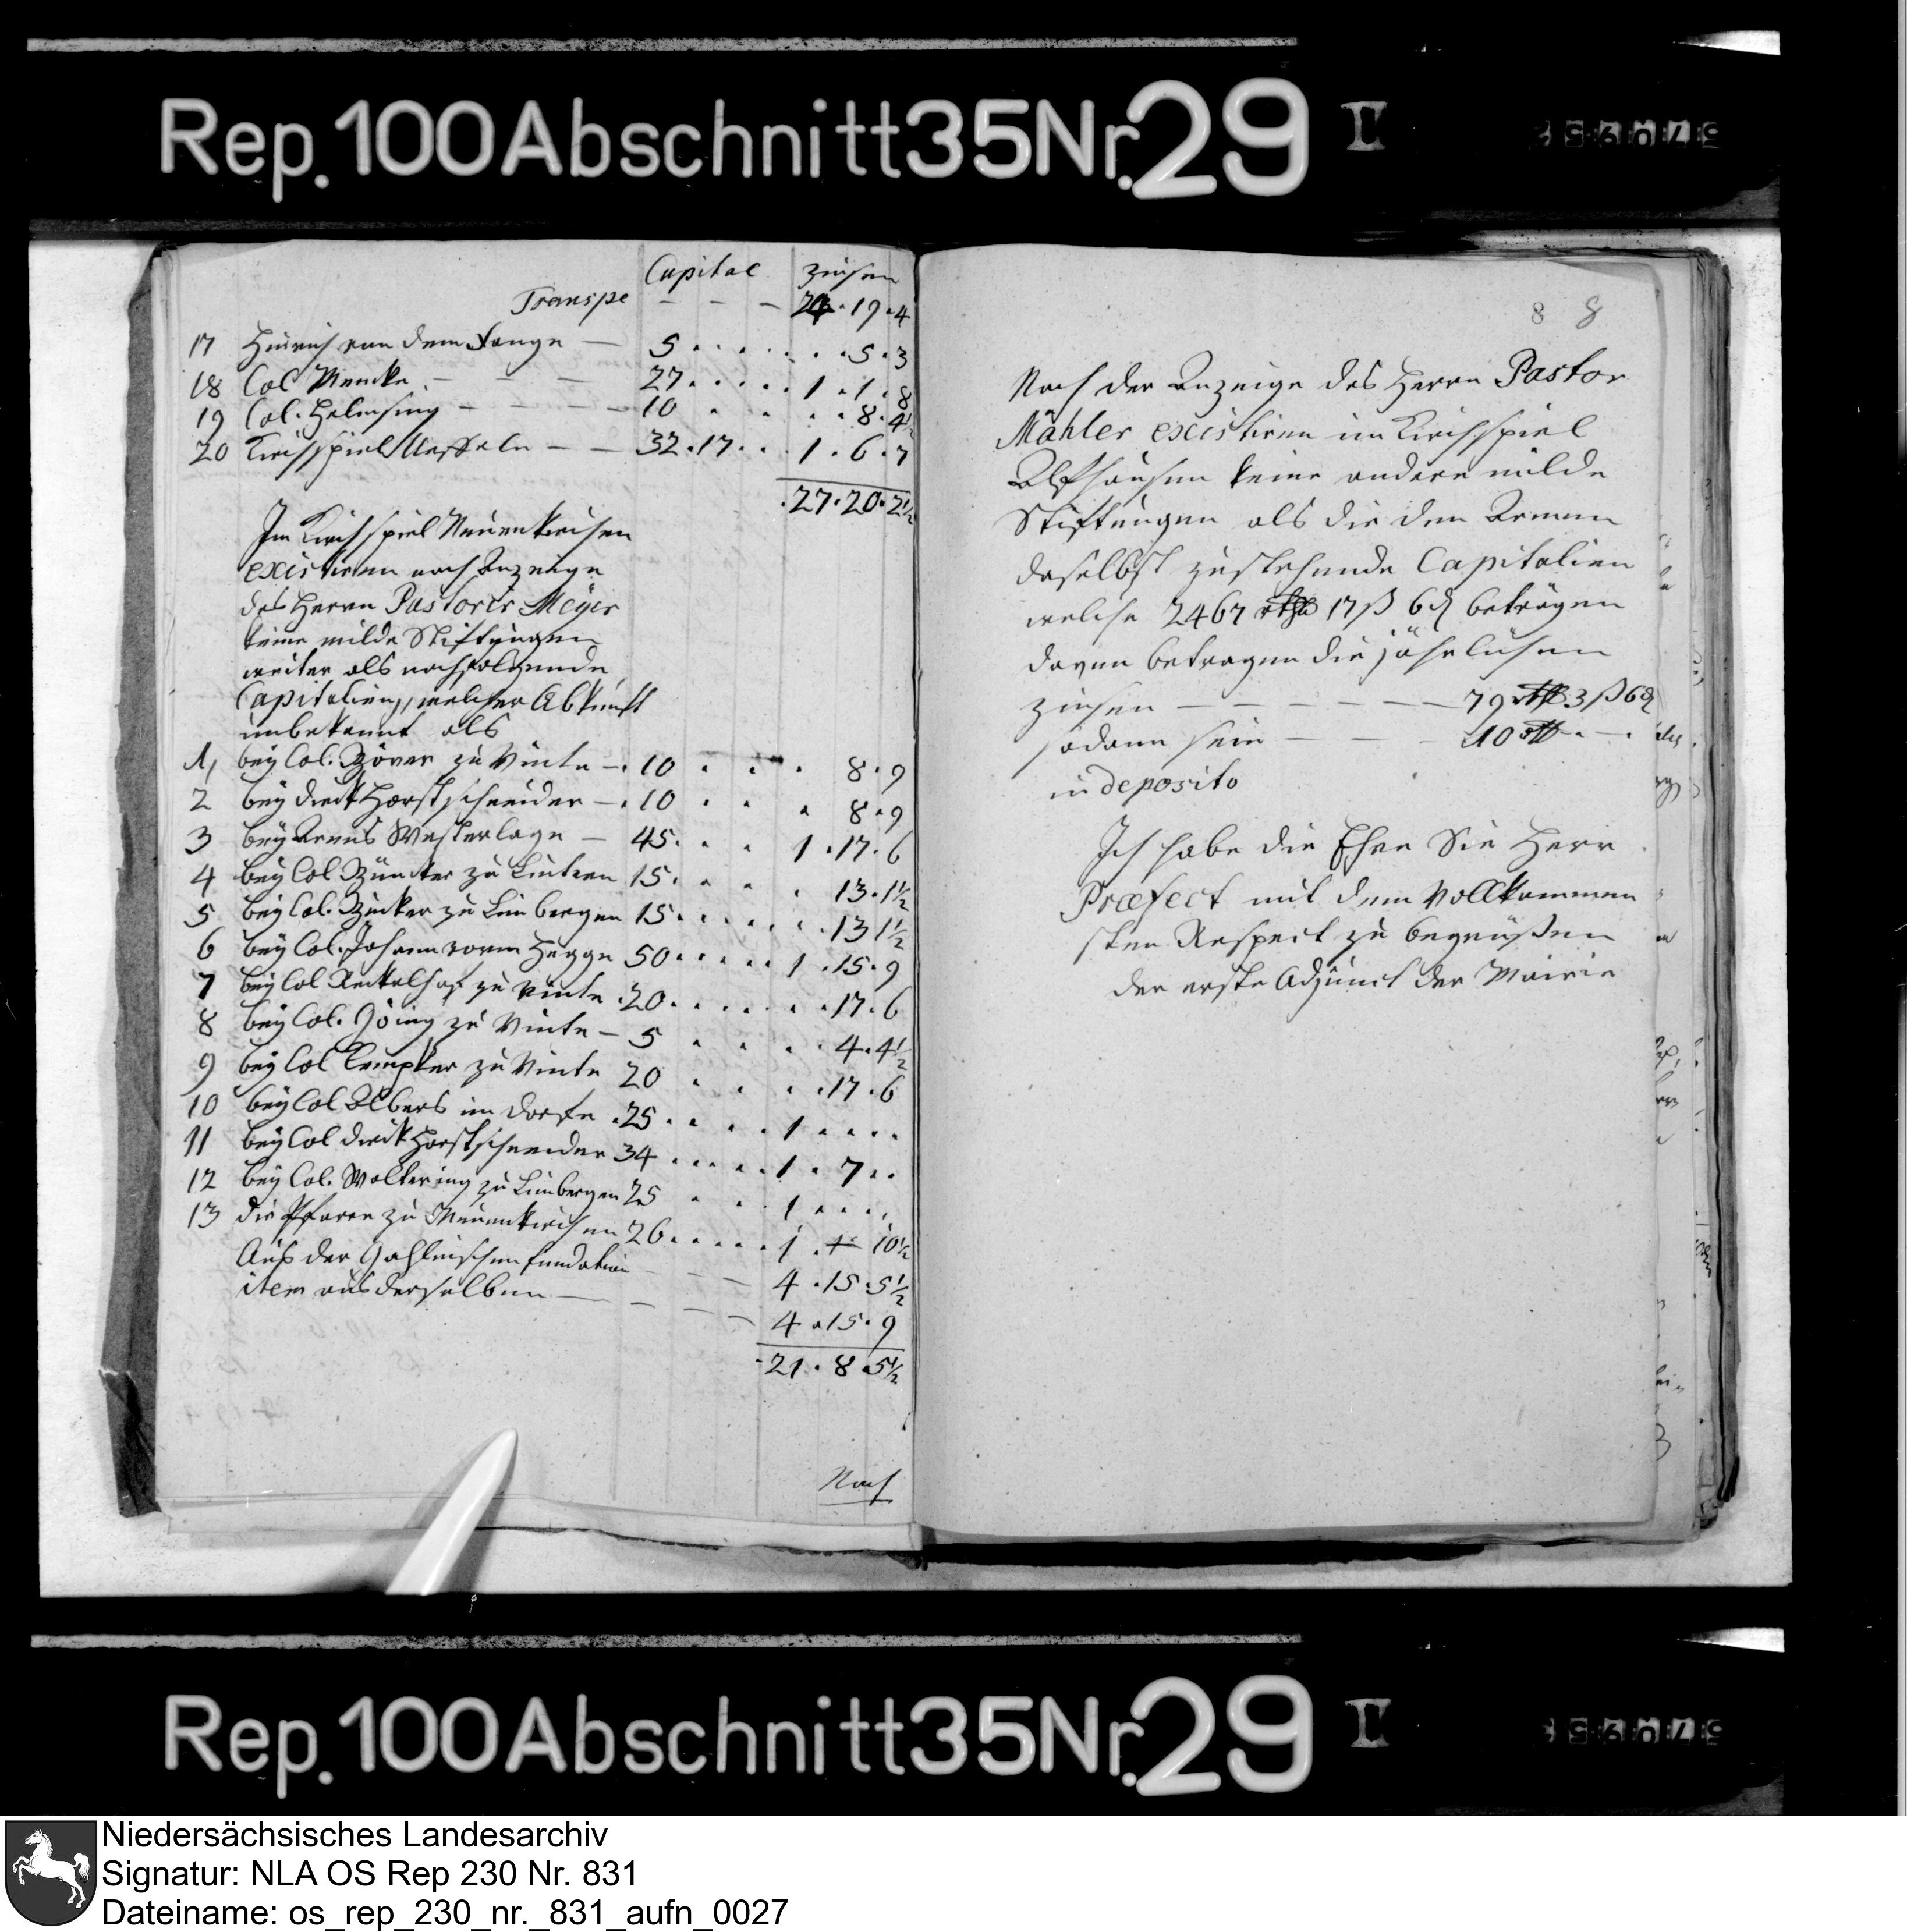 Rep. 100 Abschnitt 35 Nr. 29 I
Capital Zinsen
Transp - - - 24 . 19 . 4
17 Hinrich von dem Fange — 5 . . . . . . 5 . 3
18 Col. Mencke - - - 27 . . . . . 1 . 1 . 8
19 Col. Helmsing - - - - 10 . . . . 8 . 4½
20 Kirchspiel Ueffeln - - 32 . 17 . . 1 . 6 . 7
27 . 20 . 2½
Im Kirchspiel Neuenkirchen
existiren nach Anzeige
des Herrn Pastoris Meyer
keine milde Stiftungen
weiter als nachfolgende
Capitalien, welcher Abkunft
unbekannt als
1, bey Col. zu Vinte — . 10 . . . 8 . 9
2 bey Dirck Horstschneider — . 10 . . . 8 . 9
3 bey Arens Westerlage — 45 . . . 1 . 17 . 6
4 bey Col. zu 15 . . . . 13 . 1½
5 bey Col. zu Limbergen 15 . . . . . 13 1½
6 bey Col. Johann vorm Hegge 50 . . . . . 1 . 15 . 9
7 bey Col Reckelhof zu Vinte . 20 . . . . . . 17 . 6
8 bey Col. Going zu Vinte — 5 . . . 4 . 4½
9 bey Col Lempker zu Vinte 20 . . . . 17 . 6
10 bey Col Albers im Dorfe . 25 . . . . . 1 . . . .
11 bey Col Dirck Horstschneider 34 . . . . . 1 . 7 . .
12 bey Col. Woltering zu Limbergen 25 . . 1 . . . .
13 die Pfarre zu Neuenkirchen 26 . . . . . 1 . 10½
Aus der fundation - - - 4 . 15 . 5½
item aus derselben — - - - 4 . 15 . 9
21 . 8 . 5½
Nach
8 8
Nach der Anzeige des Herrn Pastor
Mähler existiren im Kirchspiel
Alfhausen keine andere milde
Stiftungen als die den Armen
daselbst zustehende Capitalien
welche 2467 rthl 17 ß 6 d betragen
davon betragen die jährlichen
Zinsen — — — — 79 rthl 3 ß 6 d
sodann sein — — - 10 rthl - - .
in deposito
Ich habe die Ehre Sie Herr
Præfect mit dem Vollkommen
sten Respect zu begrüßen
der erste Adjunct der Mairie
Rep. 100 Abschnitt 35 Nr. 29 I
Niedersächsisches Landesarchiv
Signatur: NLA OS Rep 230 Nr. 831
Dateiname: os_rep_230_nr._831_aufn_0027